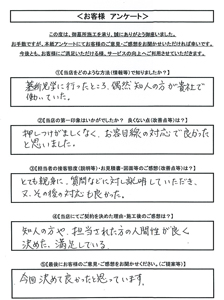 ＜お客様　アンケート＞
この度は、御墓所施工を承り、誠にありがとう御座いました。
お手数ですが、本紙アンケートにてお客様のご意見・ご感想をお聞かせいただければ幸いです。
今後とも、お客様にご満足いただける様、サービスの向上へご利用させていただきます。
①【当店をどのような方法(情報等)で知りましたか？】
墓所見学に行ったところ、偶然知人の方が貴社で
働いていた。
②【当店の第一印象はいかがでしたか？　良くない点(改善点等)は？】
押しつけがましくなく、お客目線の対応で良かった
と思いました。
③【担当者の接客態度(説明等)・お見積書・図面等のご感想(改善点等)は？】
とても親身に、質問などに対し説明していただき、
又、その後の対応も良かった。
④【当店にてご契約を決めた理由・施工後のご感想は？】
知人の方や、担当された方の人間性が良く
決めた。満足している。
⑤【最後にお客様のご意見・ご感想をお聞かせください。(ご提案等)】
今回決めて良かったと思っています。